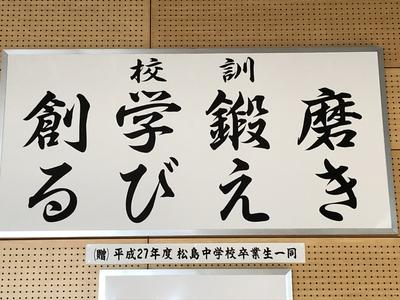 校訓
磨き
鍛え
学び
創る
(贈) 平成27年度 松島中学校卒業生一同